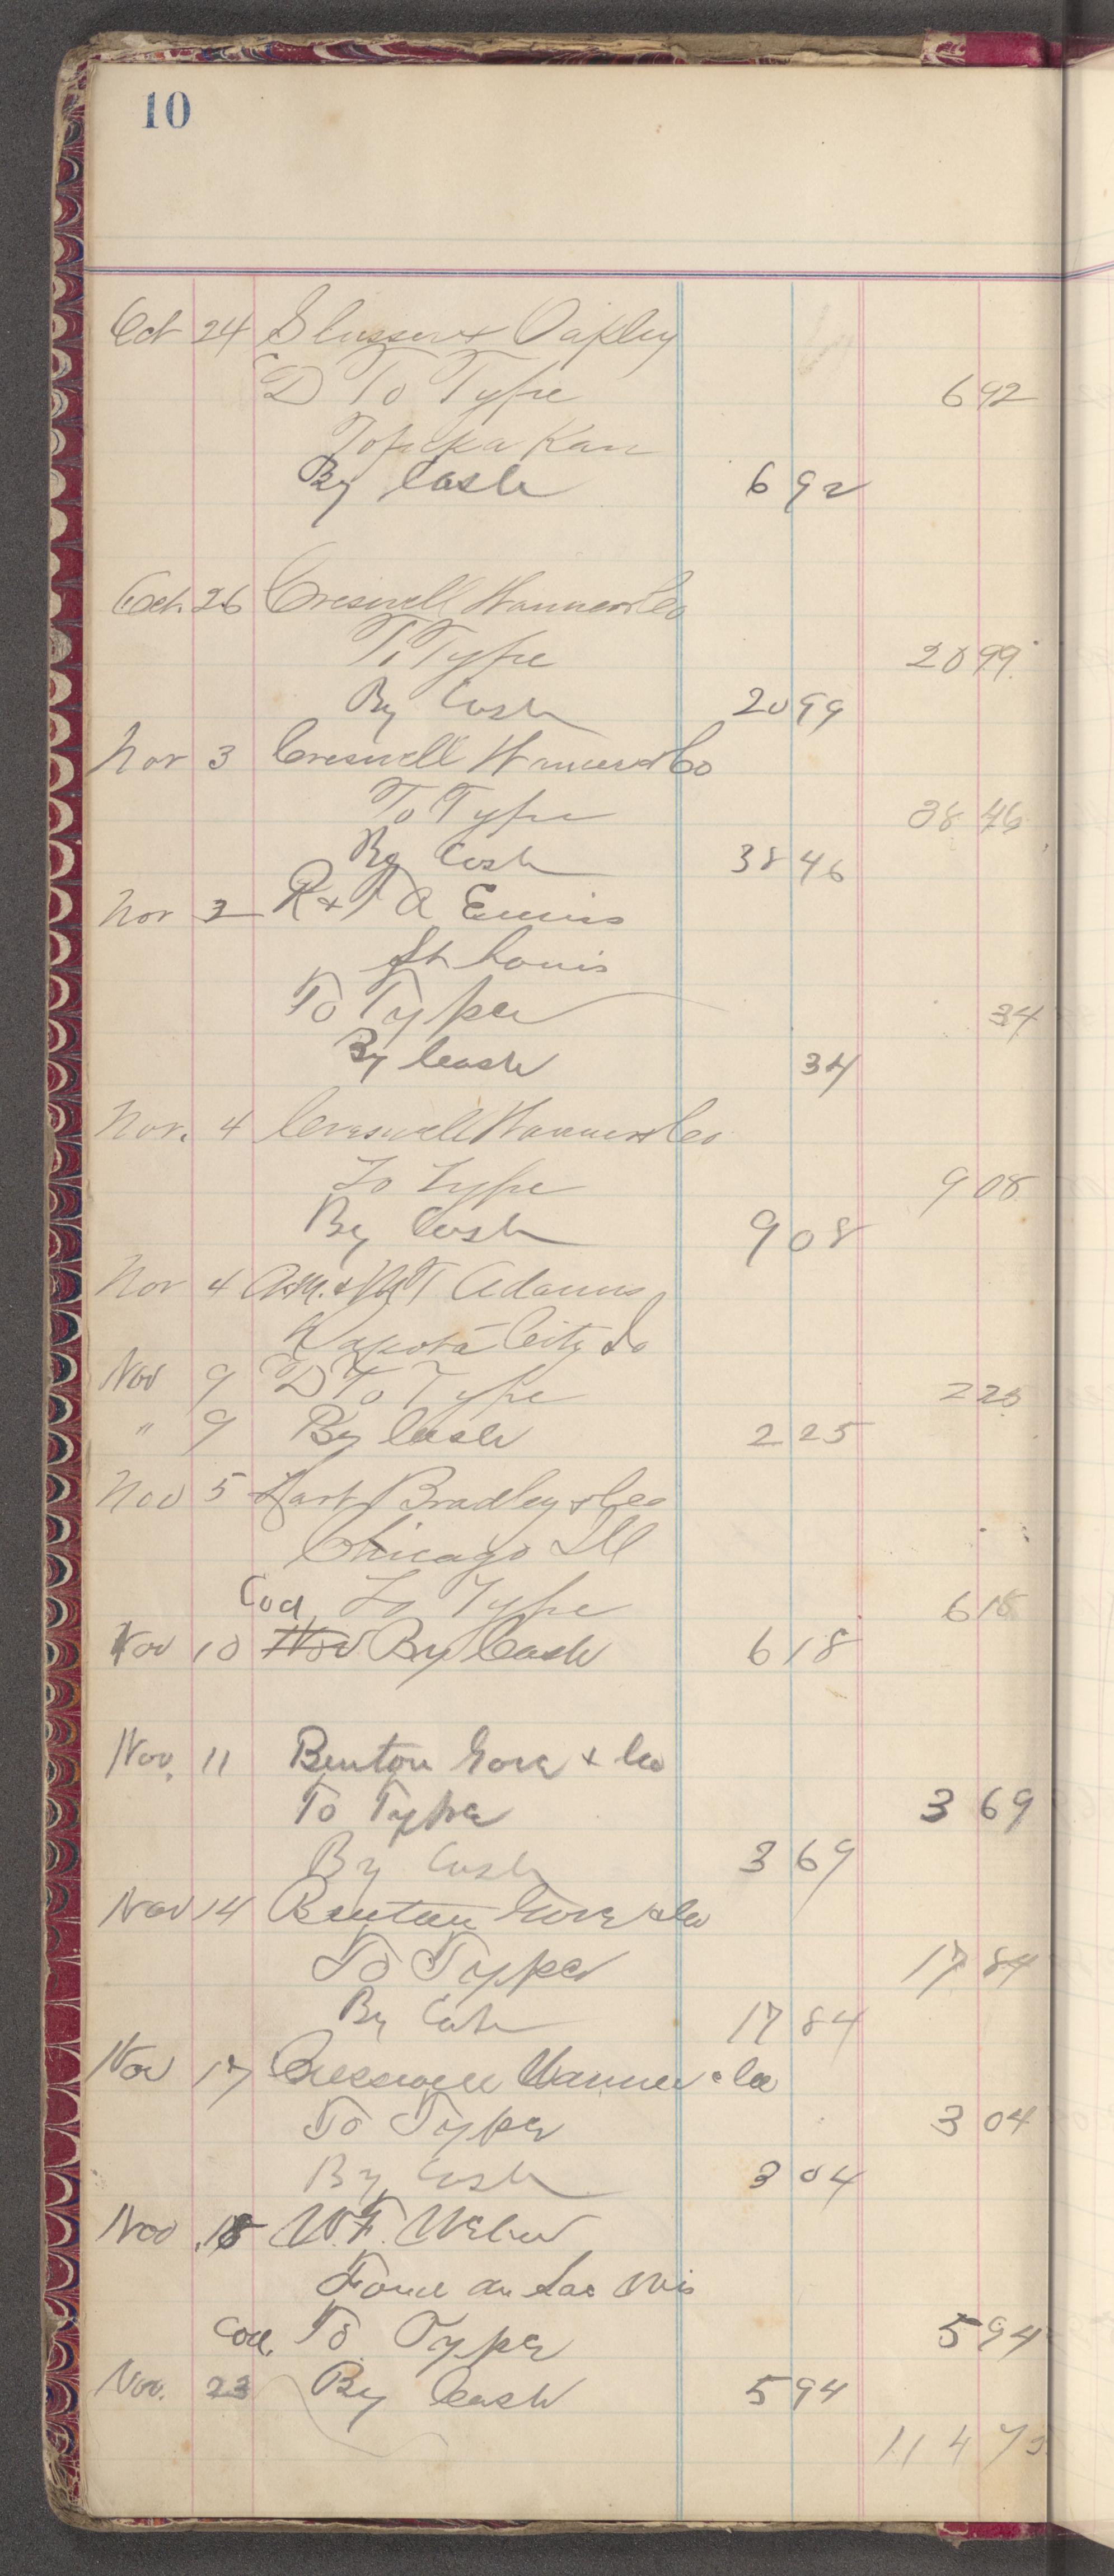 10
Oct 24 Slusser & Oakley
D To Type 6 92
Topeka Kan
By Cash 6 92
Oct. 26 Creswell Wanner & Co
To Type 20 99
By Cash 20 99
Nov 3 Creswell Wanner & Co
To Type 38 46
By Cash 38 46
Nov 3 R & T A Ennis
St Louis
To Type 34
By Cash 34
Nov. 4 Creswell Wanner & Co
To Type 9 08
By Cash 9 08
Nov 4 A.M. & W T Adams
Dakota City Io
Nov 9 D To Type 2 25
" 9 By Cash 2 25
Nov 5 Hart Bradley & Co
Chicago Ill
Cod To Type 6 18
Nov 10 Nov By Cash 6 18
Nov. 11 Benton Gove & Co
To Type 3 69
By Cash 3 69
Nov 14 Benton Gove & Co
To Type 17 84
By Cash 17 84
Nov 17 Cresswell Wanner & Co
To Type 3 04
By Cash 3 04
Nov 18 W. F. Weber
Fond du Lac Wis
Cod. To Type 5 94
Nov. 23 By Cash 5 94
114 73